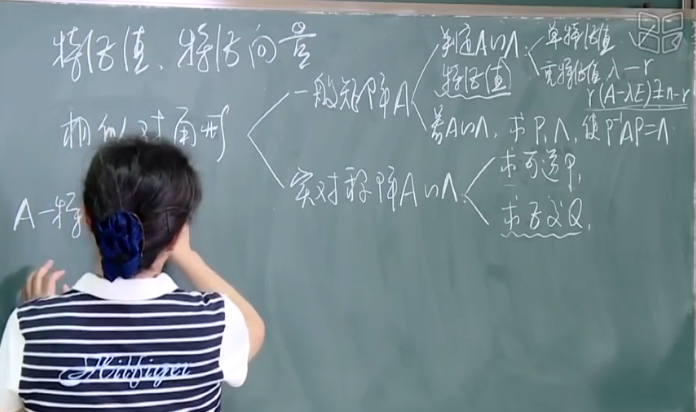 特征值、特征向量
相似对角形
一般矩阵A
判定A∽Λ:
特征(值)
单特征值 ✓
重特征值 λ—r
r(A-λE)≟n-r
若A∽Λ, 求P,Λ, 使P⁻¹AP=Λ
实对称阵A∽Λ
求可逆P,
求正交Q,
A—特
Hilfiger